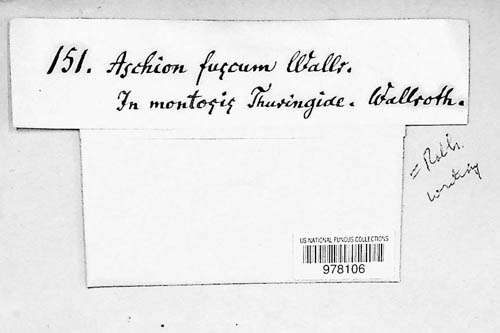 151. Aschion fuscum Wallr.
In montosis Thuringiae. Wallroth.
= Rabh.
writing
US NATIONAL FUNGUS COLLECTIONS
978106